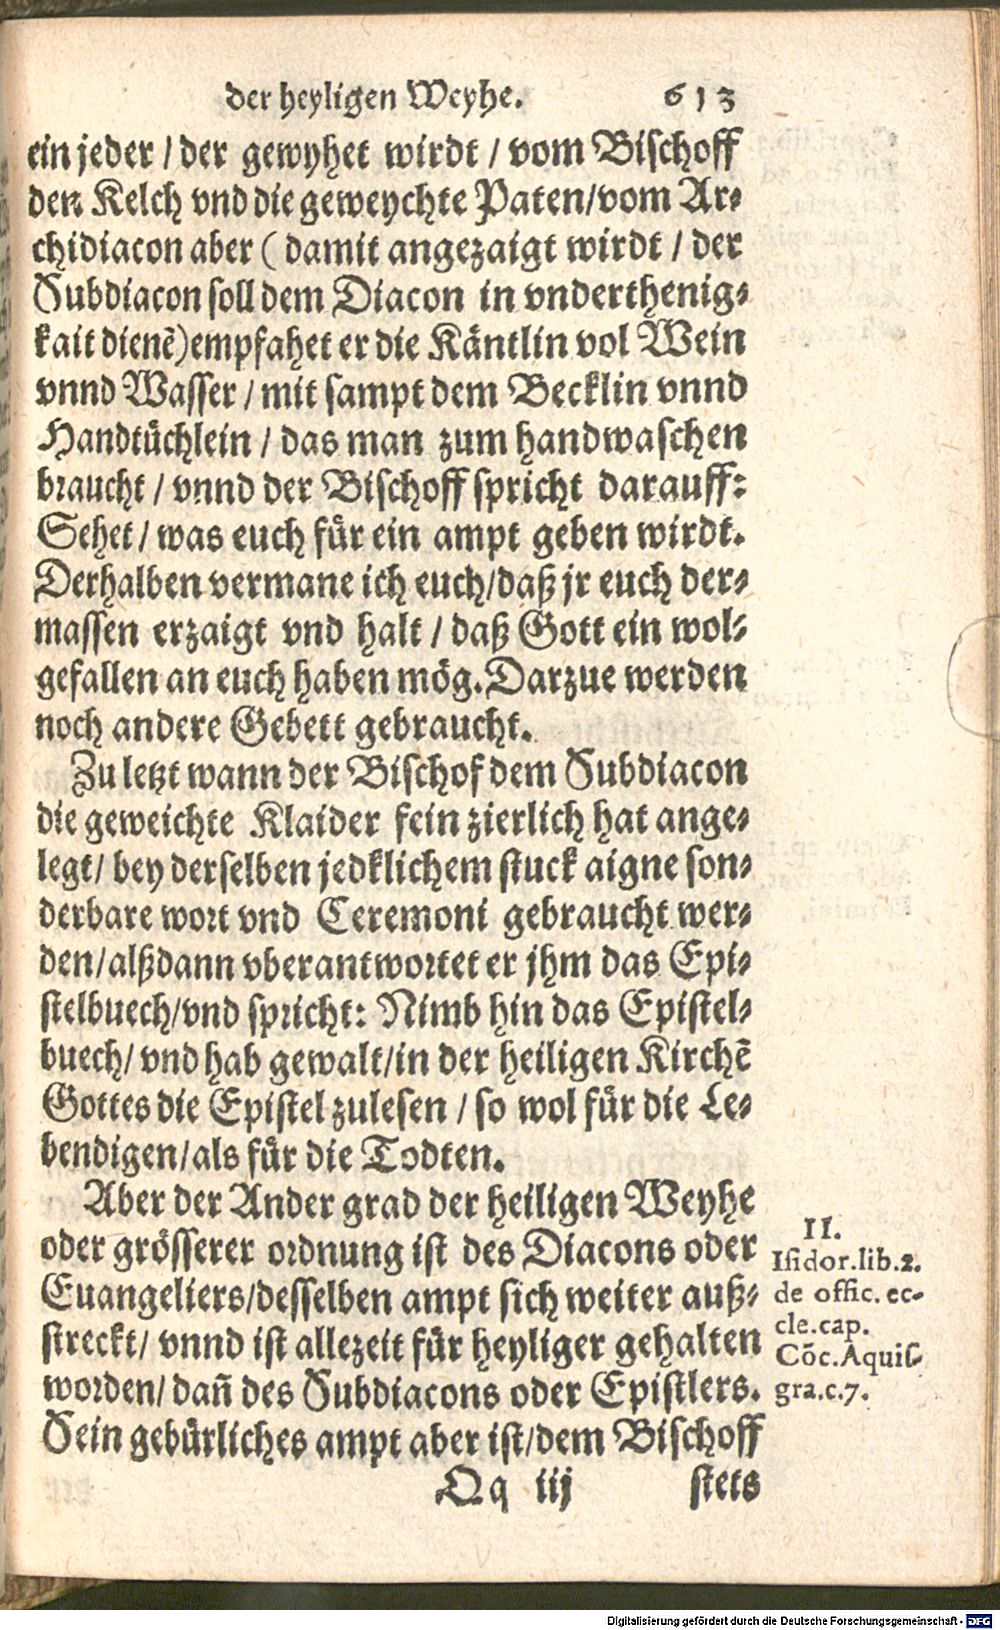 der heyligen Weyhe. 613
ein jeder / der gewyhet wirdt / vom Bischoff
den Kelch vnd die geweychte Paten/vom Ar⸗
chidiacon aber ( damit angezaigt wirdt / der
Subdiacon soll dem Diacon in vnderthenig⸗
kait dienẽ)empfahet er die Käntlin vol Wein
vnnd Wasser / mit sampt dem Becklin vnnd
Handtüchlein / das man zum handwaschen
braucht / vnnd der Bischoff spricht darauff:
Sehet / was euch für ein ampt geben wirdt.
Derhalben vermane ich euch/daß jr euch der⸗
massen erzaigt vnd halt / daß Gott ein wol⸗
gefallen an euch haben mög. Darzue werden
noch andere Gebett gebraucht.
Zu letzt wann der Bischof dem Subdiacon
die geweichte Klaider fein zierlich hat ange⸗
legt/ bey derselben jedklichem stuck aigne son⸗
derbare wort vnd Ceremoni gebraucht wer⸗
den/alßdann vberantwortet er jhm das Epi⸗
stelbuech/vnd spricht: Nimb hin das Epistel⸗
buech/ vnd hab gewalt/in der heiligen Kirchẽ
Gottes die Epistel zulesen / so wol für die Le⸗
bendigen/als für die Todten.
Aber der Ander grad der heiligen Weyhe
oder grösserer ordnung ist des Diacons oder
Euangeliers/desselben ampt sich weiter auß⸗
streckt/ vnnd ist allezeit für heyliger gehalten
worden/ dañ des Subdiacons oder Epistlers.
Sein gebürliches ampt aber ist/dem Bischoff
Qq iij stets
II.
Isidor.lib.2.
de offic. ec-
cle.cap.
Cõc.Aquis-
gra.c.7.
Digitalisierung gefördert durch die Deutsche Forschungsgemeinschaft - DFG